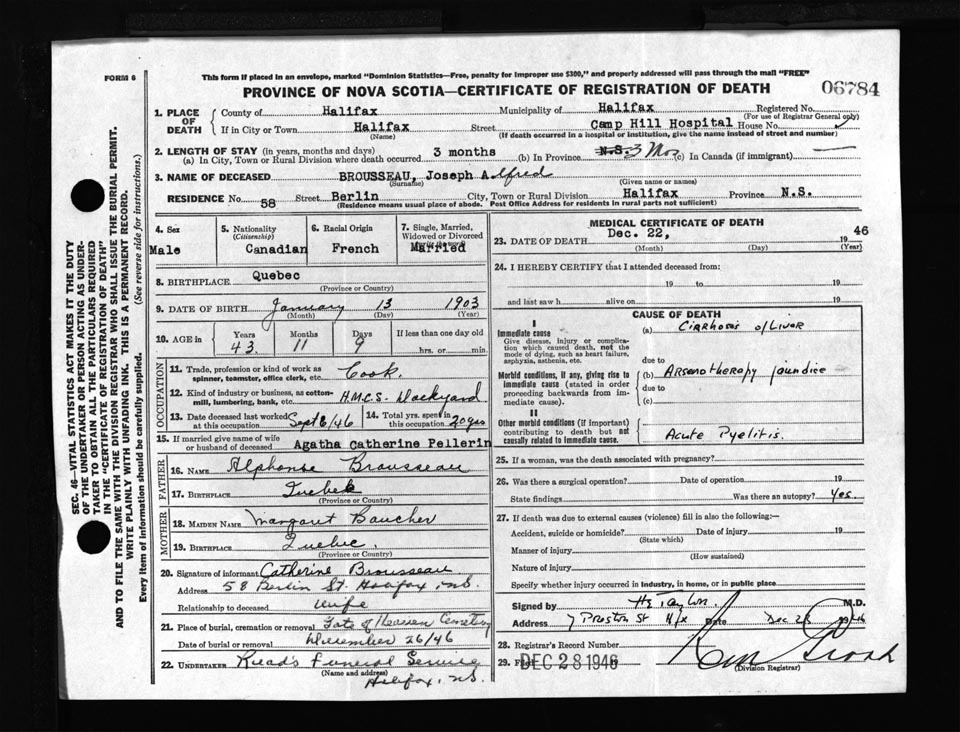 FORM 6
This form if placed in an envelope, marked "Dominion Statistics—Free, penalty for improper use $300," and properly addressed will pass through the mail "FREE"
PROVINCE OF NOVA SCOTIA—CERTIFICATE OF REGISTRATION OF DEATH
06784
1. PLACE OF DEATH
County of Halifax Municipality of Halifax Registered No.
(For use of Registrar General only)
If in City or Town Halifax Street Camp Hill Hospital House No.
(Name) (If death occurred in a hospital or institution, give the name instead of street and number)
2. LENGTH OF STAY (in years, months and days)
(a) In City, Town or Rural Division where death occurred 3 months (b) In Province N.S. 3 Mos (c) In Canada (if immigrant)
3. NAME OF DECEASED BROUSSEAU, Joseph Alfred
(Surname) (Given name or names)
RESIDENCE No. 58 Street Berlin City, Town or Rural Division Halifax Province N.S.
(Residence means usual place of abode. Post Office Address for residents in rural parts not sufficient)
4. Sex
Male
5. Nationality
(Citizenship)
Canadian
6. Racial Origin
French
7. Single, Married, Widowed or Divorced
Married
8. BIRTHPLACE Quebec
(Province or Country)
9. DATE OF BIRTH January 13 1903
(Month) (Day) (Year)
10. AGE in
Years Months Days If less than one day old
43 11 9 hrs. or min.
OCCUPATION
11. Trade, profession or kind of work as spinner, teamster, office clerk, etc. Cook.
12. Kind of industry or business, as cotton-mill, lumbering, bank, etc. H.M.C.S. Dockyard
13. Date deceased last worked at this occupation Sept 6/46
14. Total yrs. spent in this occupation 20 yrs
15. If married give name of wife or husband of deceased Agatha Catherine Pellerin
FATHER
16. NAME Alphonse Brousseau
17. BIRTHPLACE Quebek
(Province or Country)
MOTHER
18. MAIDEN NAME Margaret Baucher
19. BIRTHPLACE Quebec.
(Province or Country)
20. Signature of informant Catherine Brousseau
Address 58 Berlin St. Halifax, N.S.
Relationship to deceased wife
21. Place of burial, cremation or removal Gate of Heaven Cemetery
Date of burial or removal December 26/46
22. UNDERTAKER Funeral Service
(Name and address)
Halifax, N.S.
MEDICAL CERTIFICATE OF DEATH
23. DATE OF DEATH Dec. 22, 19 46
(Month) (Day) (Year)
24. I HEREBY CERTIFY that I attended deceased from:
19 to 19
and last saw h alive on 19
CAUSE OF DEATH
I
Immediate cause
Give disease, injury or complication which caused death, not the mode of dying, such as heart failure, asphyxia, asthenia, etc.
(a) Cirrhoses of Liver
due to
Morbid conditions, if any, giving rise to immediate cause (stated in order proceeding backwards from immediate cause).
(b) Arsenotherapy jaundice
due to
(c)
II
Other morbid conditions (if important) contributing to death but not causally related to immediate cause.
Acute Pyelitis.
25. If a woman, was the death associated with pregnancy?
26. Was there a surgical operation? Date of operation 19
State findings Was there an autopsy? Yes.
27. If death was due to external causes (violence) fill in also the following:—
Accident, suicide or homicide? Date of injury 19
(State which)
Manner of injury
(How sustained)
Nature of injury
Specify whether injury occurred in industry, in home, or in public place
Signed by H S Taylor M.D.
Address 7 Preston St Hfx Date Dec 23
28. Registrar's Record Number
29. Filed DEC 28 1946
(Division Registrar)
SEC. 46—VITAL STATISTICS ACT MAKES IT THE DUTY
OF THE UNDERTAKER OR PERSON ACTING AS UNDER-
TAKER TO OBTAIN ALL THE PARTICULARS REQUIRED
IN THE "CERTIFICATE OF REGISTRATION OF DEATH"
AND TO FILE THE SAME WITH THE DIVISION REGISTRAR WHO SHALL ISSUE THE BURIAL PERMIT.
WRITE PLAINLY WITH UNFADING INK. THIS IS A PERMANENT RECORD.
Every item of information should be carefully supplied. (See reverse side for instructions.)